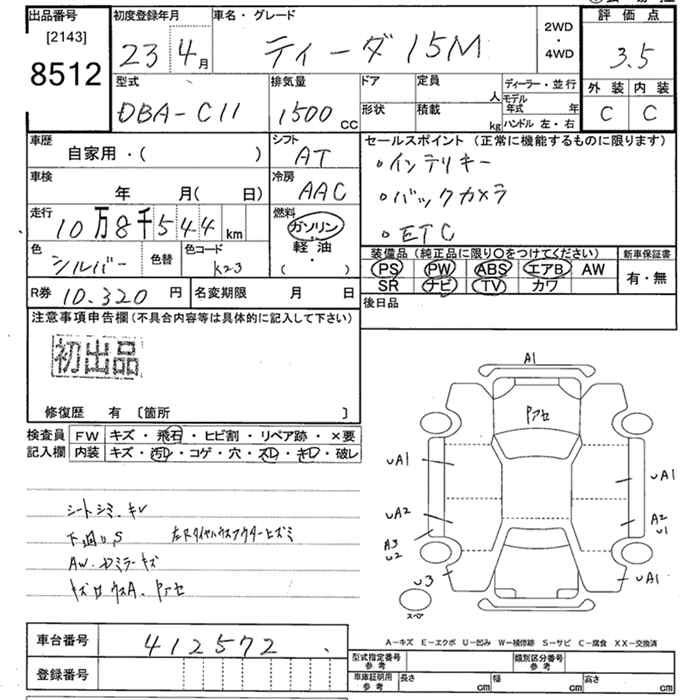 出品番号
[2143]
8512
初度登録年月
23 4月
車名・グレード
ティーダ 15M
2WD
・
4WD
評価点
3.5
外装 内装
C C
型式
DBA-C11
排気量
1500 CC
ドア
形状
定員 人
積載 kg
ディーラー・並行
モデル年式 年
ハンドル 左・右
車歴
自家用・( )
シフト
AT
セールスポイント (正常に機能するものに限ります)
・インテリキー
・バックカメラ
・ETC
車検
年 月( 日)
冷房
AAC
走行
10万8千544 km
燃料
ガソリン・
軽油・
( )
色
シルバー
色替
色コード
K23
装備品 (純正品に限り○をつけてください)
PS PW ABS エアB AW
SR ナビ TV カワ
新車保証書
有・無
R券 10,320 円
名変期限 月 日
後日品
注意事項申告欄 (不具合内容等は具体的に記入して下さい)
初出品
修復歴 有 [箇所 ]
検査員
記入欄
FW キズ・飛石・ヒビ割・リペア跡・×要
内装 キズ・汚レ・コゲ・穴・スレ・キレ・破レ
シートシミ、キレ
下廻り、S
AW、Dミラーキズ
A1
Pアセ
uA1
uA2
A3
u2
u3
uA1
A2
u1
uA1
スペア
A-キズ E-エクボ U-凹み W-補修跡 S-サビ C-腐食 XX-交換済
車台番号
412572
登録番号
型式指定番号
参考
類別区分番号
参考
車庫証明用
参考
長さ cm
幅 cm
高さ cm